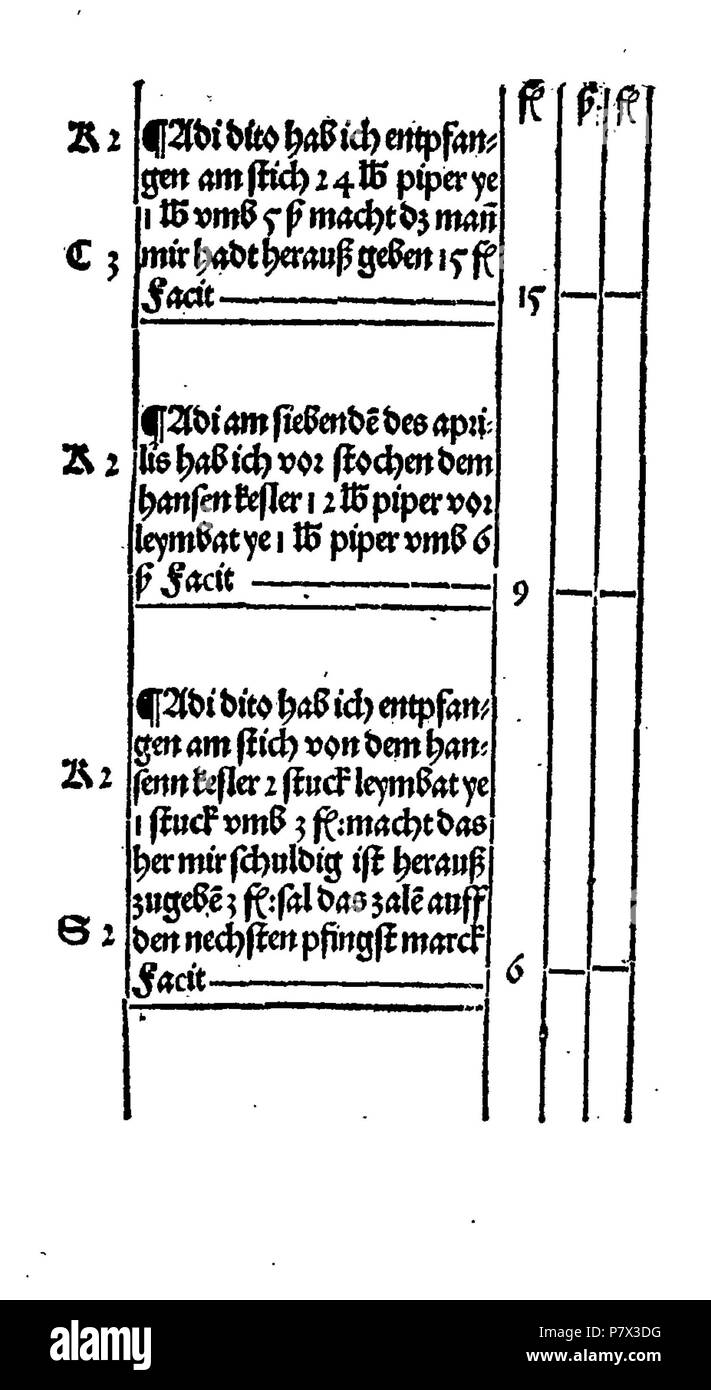 fl ß fl
K 2 ¶Adi dito hab ich entpfan⸗
gen am stich 24 lb piper ye
1 lb vmb 5 ß macht dz man̄
C 3 mir hadt herauß geben 15 fl
Facit 15
¶Adi am siebendē des apri⸗
K 2 lis hab ich vor stochen dem
hansen kesler 12 lb piper vor
leymbat ye 1 lb piper vmb 6
ß Facit 9
¶Adi dito hab ich entpfan⸗
gen am stich von dem han⸗
K 2 senn kesler 2 stuck leymbat ye
1 stuck vmb 3 fl:macht das
her mir schuldig ist herauß
zugebē 3 fl:sal das zalē auff
S 2 den nechsten pfingst marck
Facit 6
alamy
Image ID: P7X3DG
www.alamy.com